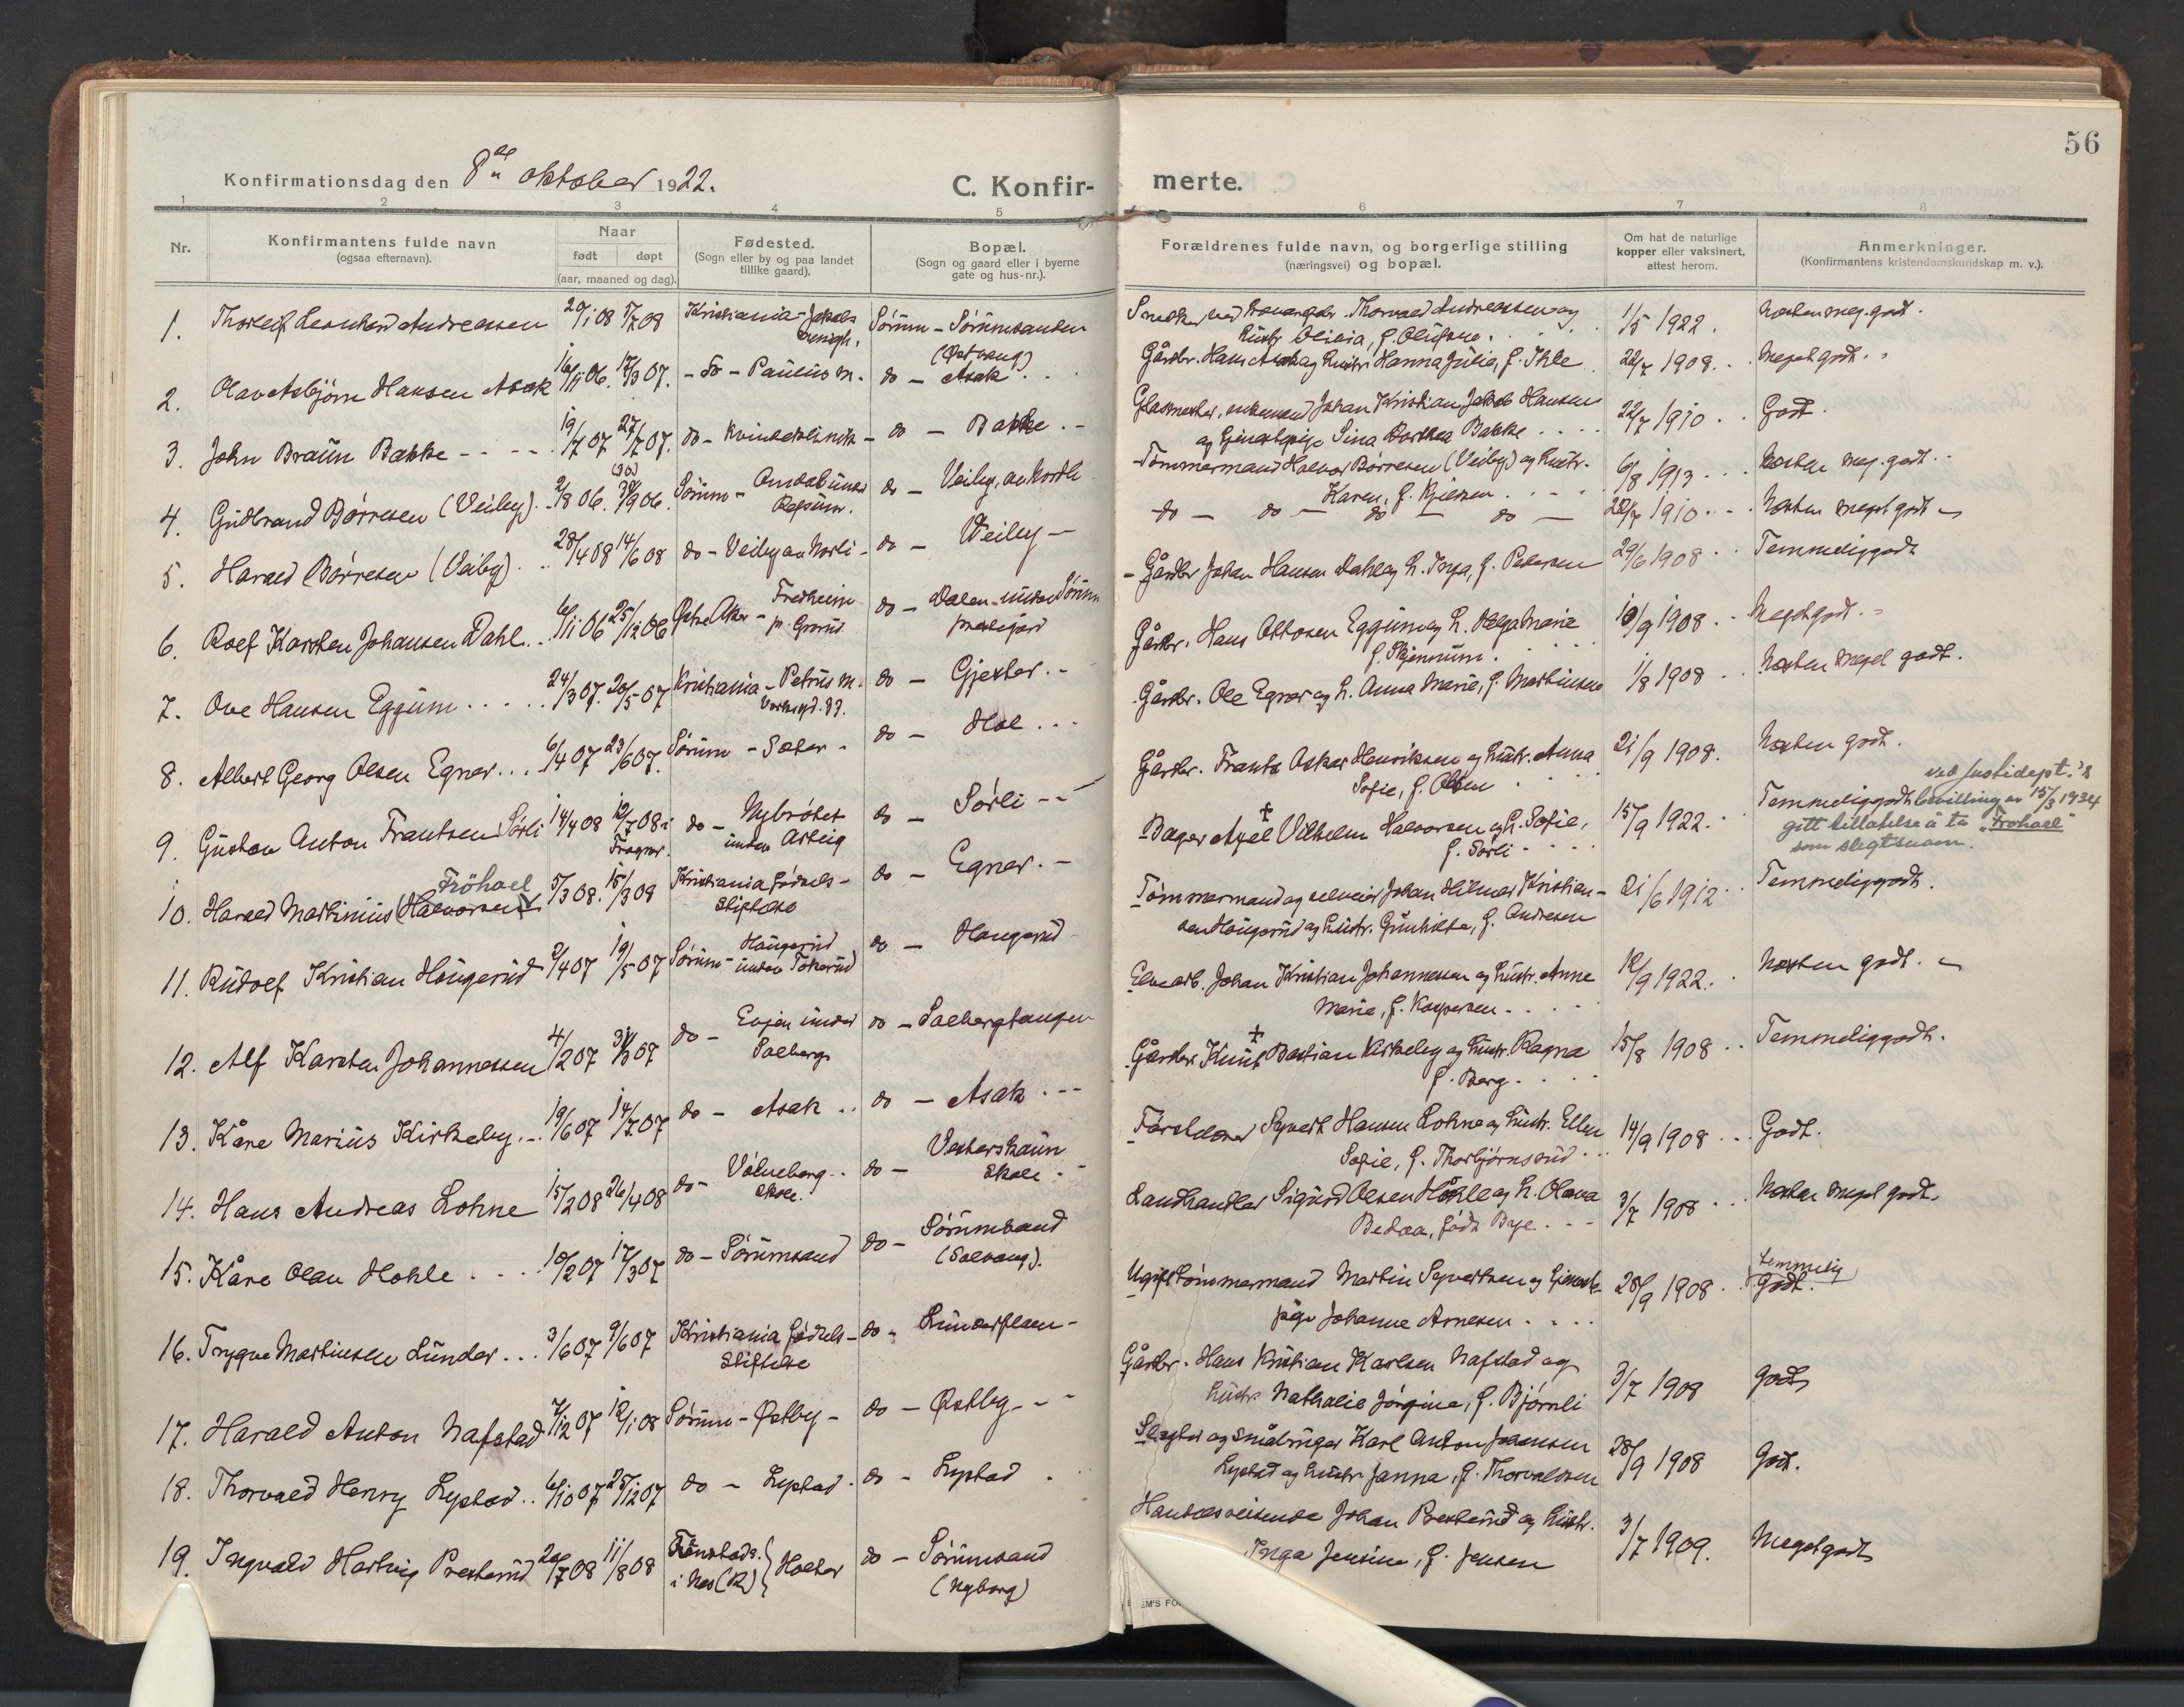 56
Konfirmationsdag den 8de oktober 1922.
C. Konfir- merte.
1 2 3 4 5 6 7 8
Nr.
Konfirmantens fulde navn
(ogsaa efternavn).
Naar
født døpt
(aar, maaned og dag).
Fødested.
(Sogn eller by og paa landet
tillike gaard).
Bopæl.
(Sogn og gaard eller i byerne
gate og hus-nr.).
Forældrenes fulde navn, og borgerlige stilling
(næringsvei) og bopæl.
Om hat de naturlige
kopper eller vaksinert,
attest herom.
Anmerkninger.
(Konfirmantens kristendomskundskap m. v.).
1. Thorleif Leonhard Andreassen 29/1 08 5/7 08 Kristiania - Jakobs Sørum - Sørumsanden
menigh. (Østvang)
Thorvald Andreassen og 1/5 1922. Næsten meg. godt.
hustr. Olivia, f. Olufsen.
2. Olav Asbjørn Hansen Asak 16/11 06. 17/3 07. - do - Paulus m. do - Asak
Gårdbr. Hans Asak og hustr. Hanna Julia, f. Ihle 22/7 1908. Meget godt.
3. John Braün Bakke 19/7 07 27/7 07. do - Kvindeklinik - do - Bakke
Glasmester, enkemand Johan Kristian Jakob Hansen 22/7 1910 Godt.
og tjenestepige Sina Dorthea Bakke
4. Gudbrand Børresen (Veiby) 2/8 06. 30/9 06. Sørum - do - Veiby, av Nordli
(30)
Tømmermand Halvor Børresen (Veiby) og hustr. 6/8 1913 Næsten meg. godt.
Karen, f.
5. Harald Børresen (Veiby) 28/4 08 14/6 08 do - Veiby av Norli - do - Veiby
do - do - do - do - 22/7 1910 Næsten meget godt
6. Rolf Karsten Johansen Dahl 6/11 06 25/12 06 Østre Aker - Fredheim do - Dalen under Sørum
pr. Grorud prestegård
Gårdbr. Johan Hansen Dahl og h. Inga, f. Petersen 29/6 1908 Temmelig godt
7. Ove Hansen Eggum 24/3 07. 20/5 07 Kristiania - Petrus m. do - Gjester
Gårdbr. Hans Ottosen Eggum og h. Olga Marie 10/9 1908 Meget godt.
8. Albert Georg Olsen Egner 6/4 07 23/6 07. Sørum - Sæter - do - Hol
Gårdbr. Ole Egner og h. Anna Marie, f. Martinsen 1/8 1908 Næsten meget godt.
9. Gustav Anton Frantsen Sørli 14/4 08 12/7 08 i do - Nybrötet do - Sørli
Frogner. under Asteig
Gårdbr. Frants Oskar Henriksen og hustr. Anna 21/9 1908. Næsten godt.
Sofie, f. Olsen
10. Harald Martinius (Halvorsen) 5/3 08. 15/3 08 Kristiania fødsels- do - Egner
Fröhael stiftelse
Bager Axel † Vilhelm Halvorsen og h. Sofie, 15/9 1922. Temmelig godt
f. Sørli
ved Justidept.'s
bevilling av 15/3 1934
gitt tillatelse å ta "Frohael"
som slegtsnavn.
11. Rudolf Kristian Haugerud 2/4 07 19/5 07 Sørum - Haugerud do - Haugerud
under Tokerud
Tømmermand og selveier Johan Hilmar Kristian- 21/6 1912 Temmelig godt.
sen Haugerud og hustr. Gunhilda, f. Andresen
12. Alf Karsten Johannessen 4/2 07 31/3 07 do - Evjen under do - Solbergtangen
Solberg
Elvearb. Johan Kristian Johannessen og hustr. Anne 12/9 1922. Næsten godt.
Marie, f. Kaspersen
13. Kåre Marius Kirkeby 19/6 07 14/7 07 do - Asak do - Asak
Gårdbr. Knut † Bastian Kirkeby og hustr. Ragna 15/8 1908 Temmelig godt.
f. Berg
14. Hans Andreas Lohne 15/2 08 26/4 08 do - Vølneberg do - Vesterskaun
skole. skole
Syvert Hansen Lohne og hustr. Ellen 14/9 1908 Godt.
Sofie, f. Thorbjørnsrud
15. Kåre Olau Hohle 10/2 07 17/3 07 do - Sørumsand do - Sørumsand
(Solvang).
Landhandler Sigurd Olsen Hohle og h. Olava 3/7 1908 Næsten meget godt.
født Bye
16. Trygve Martinsen Lunder 3/6 07 9/6 07 Kristiania fødsels- do - Lunderplaen
stiftelse
Ugift tømmermand Martin Syvertsen og tjeneste- 28/9 1908 temmelig
pige Johanne Arnesen godt.
17. Harald Anton Nafstad 7/12 07 12/1 08 Sørum - Østby - do - Østby
Gårdbr. Hans Kristian Karlsen Nafstad og 3/7 1908 godt
hustr. Nathalie Jørgine, f. Bjørnli
18. Thorvald Henry Lystad 6/10 07 25/12 07 do - Lystad do - Lystad
Slagter og småbruger Karl Anton Jensen 28/9 1908 godt.
Lystad og hustr. Janna, f. Thorvaldsen
19. Ingvald Hartvig Presterud 20/7 08 11/8 08 Holter do - Sørumsand
i Nes (R.) (Nyborg)
Handelsreisende Johan Presterud og hustr. 3/7 1909. Meget godt
Inga Jensine, f. Jensen